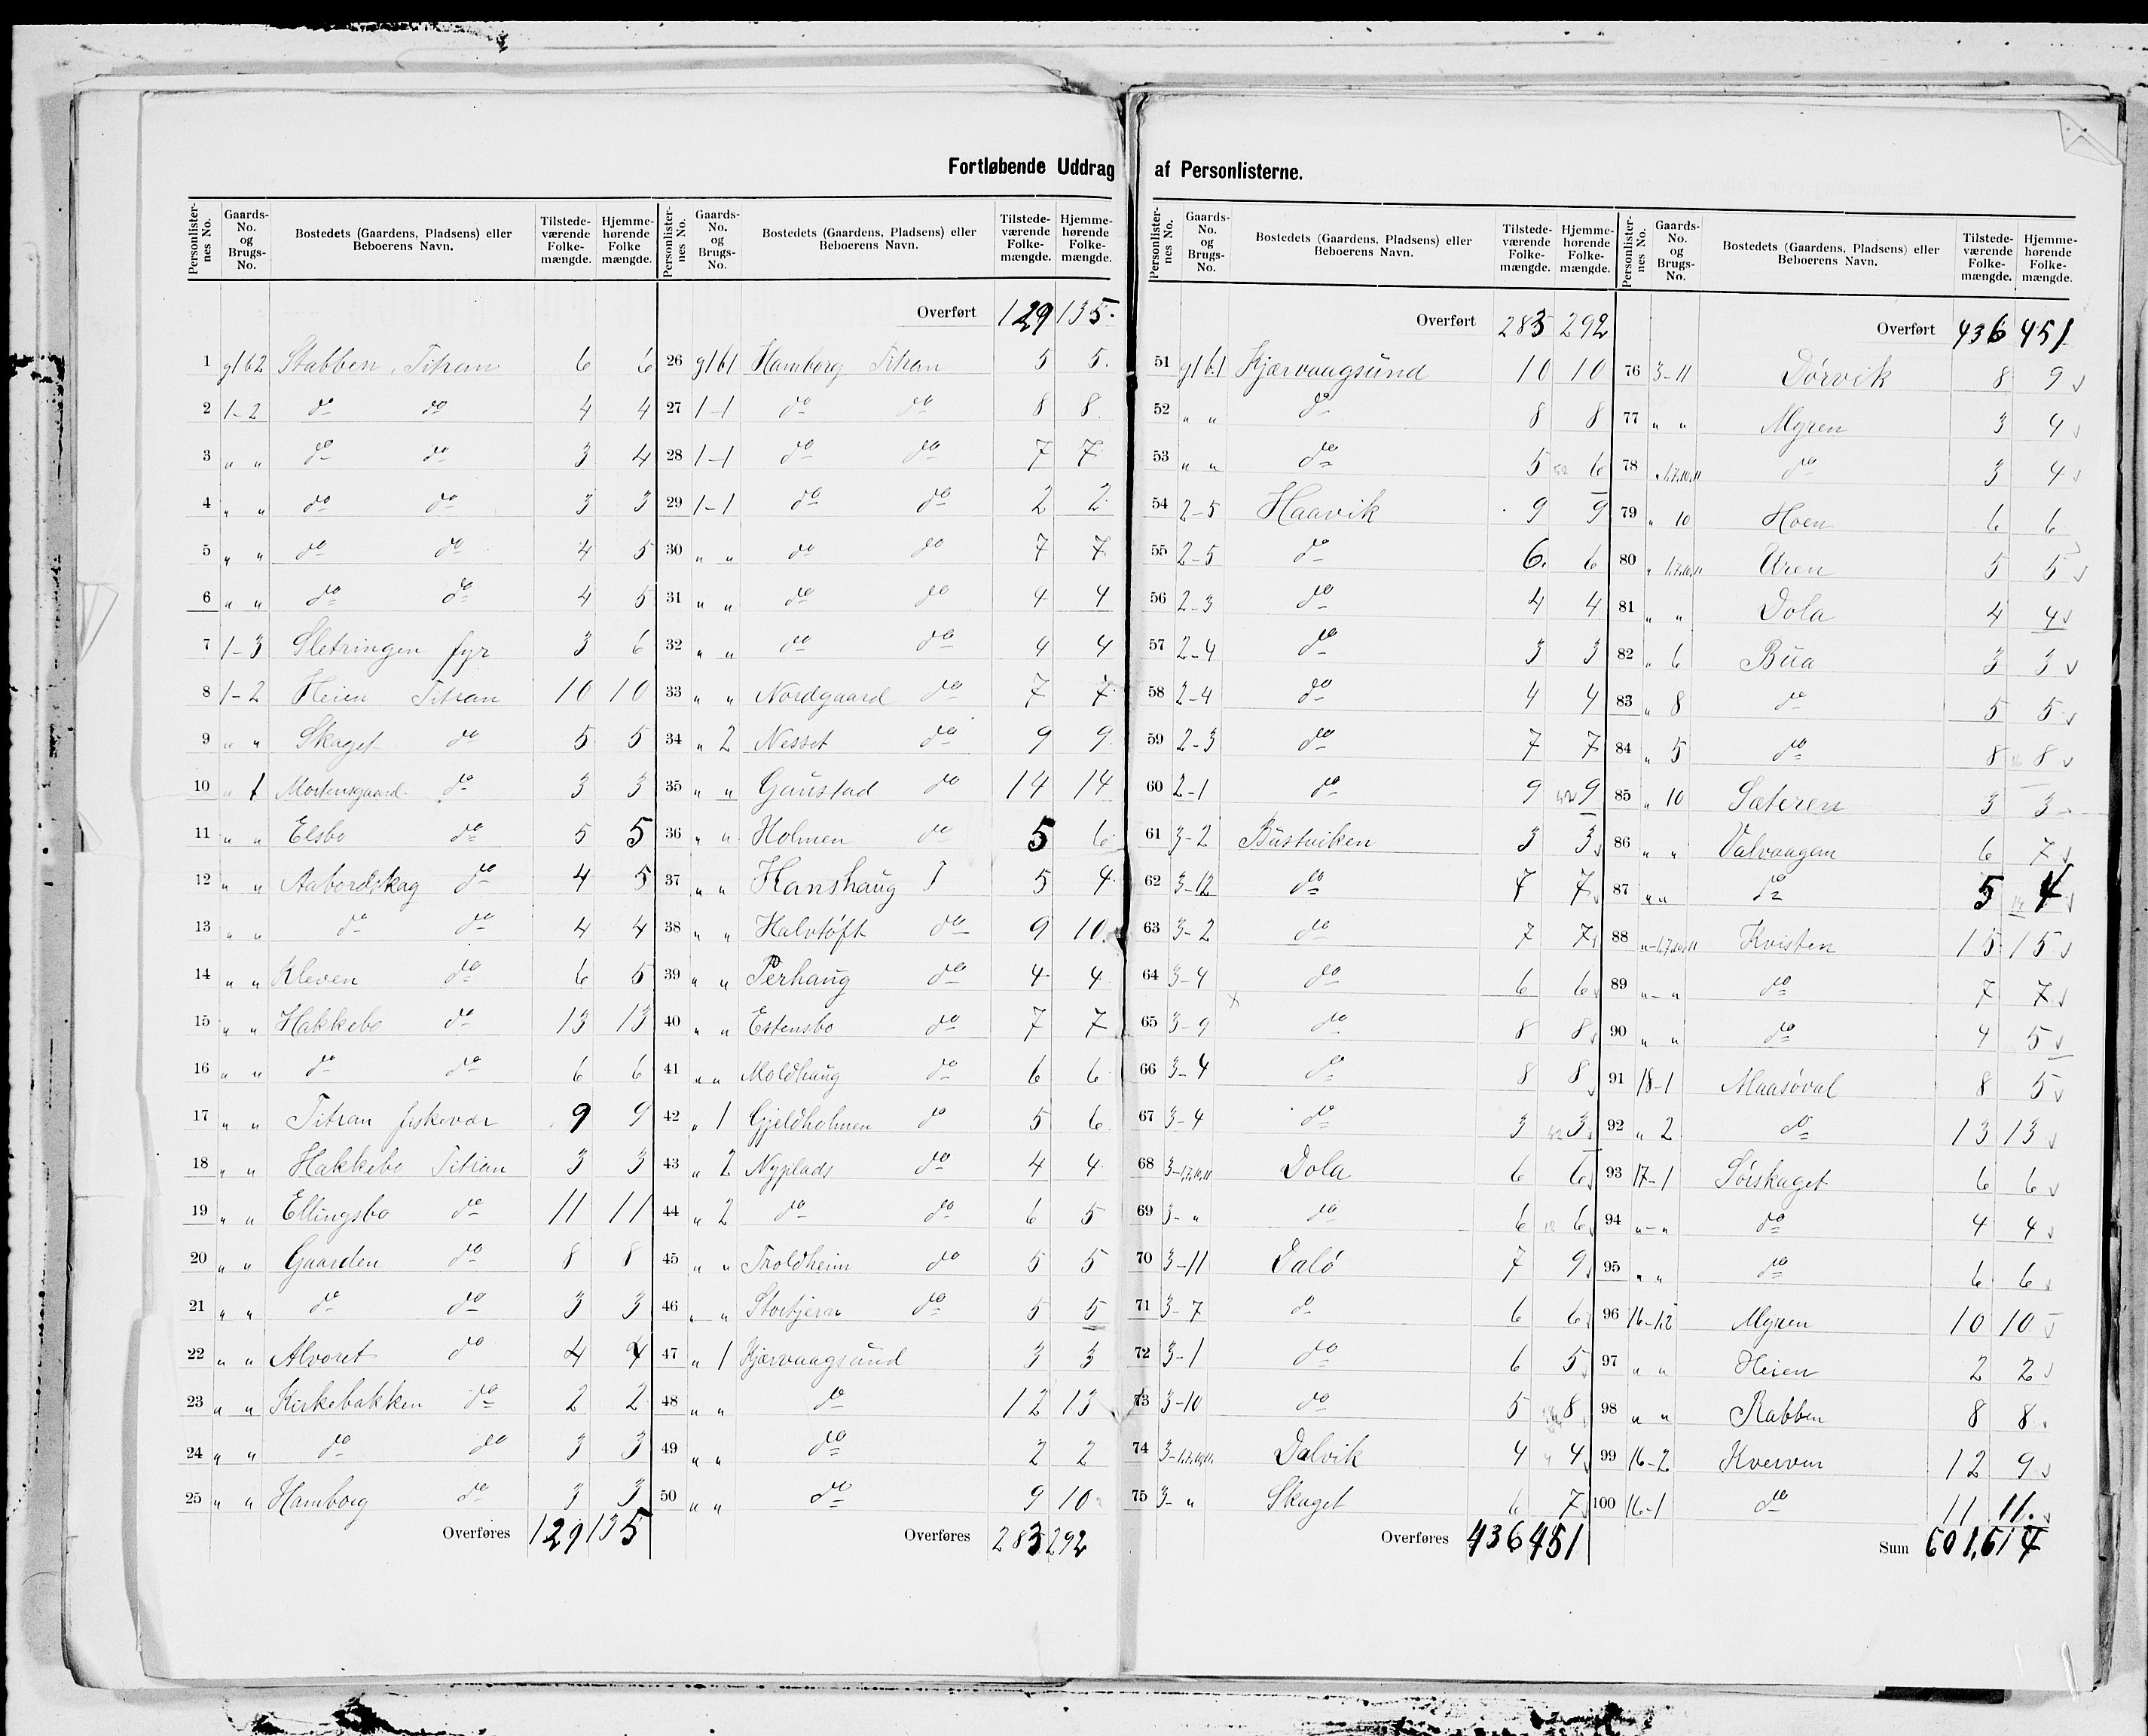 Fortløbende Uddrag af Personlisterne.
Personlister-nes No. Gaards-No. og Brugs-No. Bostedets (Gaardens, Pladsens) eller Beboerens Navn. Tilstede-værende Folke-mængde. Hjemme-hørende Folke mængde.
1 g1b2 Stabben, Titran 6 6
2 1-2 do do 4 4
3 " " do do 3 4
4 " " do do 3 3
5 " " do do 4 5
6 " " do do 4 5
7 1-3 Sletringen fyr 3 6
8 1-2 Heien Titran 10 10
9 " " Skaget do 5 5
10 " 1 Mortensgaard do 3 3
11 " " Elsbo do 5 5
12 " " Aabordskag do 4 5
13 " " do do 4 4
14 " " Kleven do 6 5
15 " " Hakkebo do 13 13
16 " " do do 6 6
17 " " Titran fiskevær 9 9
18 " " Hakkebo Titran 3 3
19 " " Ellingsbo do 11 11
20 " " Gaarden do 8 8
21 " " do do 3 3
22 " " Alvoret do 4 4
23 " " Kirkebakken do 2 2
24 " " do do 3 3
25 " " Hamborg do 3 3
Overføres 129 135
Personlister-nes No. Gaards-No. og Brugs-No. Bostedets (Gaardens, Pladsens) eller Beboerens Navn. Tilstede-værende Folke-mængde. Hjemme-hørende Folke-mængde.
Overført 129 135.
26 g1b1 Hamborg Titran 5 5.
27 1-1 do do 8 8.
28 1-1 do do 7 7
29 1-1 do do 2 2
30 " " do do 7 7
31 " " do do 4 4
32 " " do do 4 4
33 " " Nordgaard do 7 7
34 " 2 Nesset do 9 9
35 " " Gaustad do 14 14
36 " " Holmen do 5 6
37 " " Hanshaug T 5 4
38 " " Halvtøft do 9 10.
39 " " Perhaug do 4 4
40 " " Estensbo do 7 7
41 " " Moldhaug do 6 6
42 " 1 Gjeldholmen do 5 6
43 " 2 Nyplads do 4 4
44 " 2 do do 6 5
45 " " Troldheim do 5 5
46 " " do 5 5
47 " 1 Kjærvaagsund 3 3
48 " " do 12 13
49 " " do 2 2
50 " " do 9 10
Overføres 283 292
Personlister-nes No. Gaards-No. og Brugs-No. Bostedets (Gaardens, Pladsens) eller Beboerens Navn. Tilstede-værende Folke-mængde. Hjemme-hørende Folke-mængde.
Overført 283 292
51 g1b.1 Kjærvaagsund 10 10
52 " " do 8 8
53 " " do 5 6
54 2-5 Haavik 9 9
55 2-5 do 6. 6
56 2-3 do 4 4
57 2-4 do 3 3
58 2-4 do 4 4
59 2-3 do 7 7
60 2-1 do 9 9
61 3-2 Bustviken 3 3
62 3-12 do 7 7
63 3-2 do 7 7
64 3-4 do 6 6
65 3-9 do 8 8
66 3-4 do 8 8
67 3-4 do 3 3
68 3-1,7,10,11 Dola 6 6
69 3- " do 6 6
70 3-11 Dalø 7 9
71 3-7 do 6 6
72 3-1 do 6 5
73 3-10 do 5 8
74 3-1,7,10,11. Dalvik 4 4
75 3- " Skaget 6 7
Overføres 436 451
Personlister-nes No. Gaards-No. og Brugs-No. Bostedets (Gaardens, Pladsens) eller Beboerens Navn. Tilstede-værende Folke-mængde. Hjemme-hørende Folke-mængde.
Overført 436 451
76 3-11 Dørvik 8 9
77 " " Myren 3 4
78 " 1,7,10,11 do 3 4
79 " 10 Hoen 6 6
80 " 1,7,10,11 Uren 5 5
81 " " Dola 4 4
82 " 6 Bua 3 3
83 " 8 do 5 5
84 " 5 do 8 8
85 " 10 Sæteren 3 3
86 " " Valvaagen 6 7
87 " " do 5 4
88 "-1,7,10,11 Kvisten 15 15
89 "-" do 7 7
90 " " do 4 5
91 18-1 Maasøval 8 5
92 " 2 do 13 13
93 17-1 Sørskaget 6 6
94 "-" do 4 4
95 " " do 6 6
96 16-1,2 Myren 10 10
97 " " Heien 2 2
98 " " Rabben 8 8
99 16-2 Kverven 12 9
100 16-1 do 11 11.
Sum 601, 614